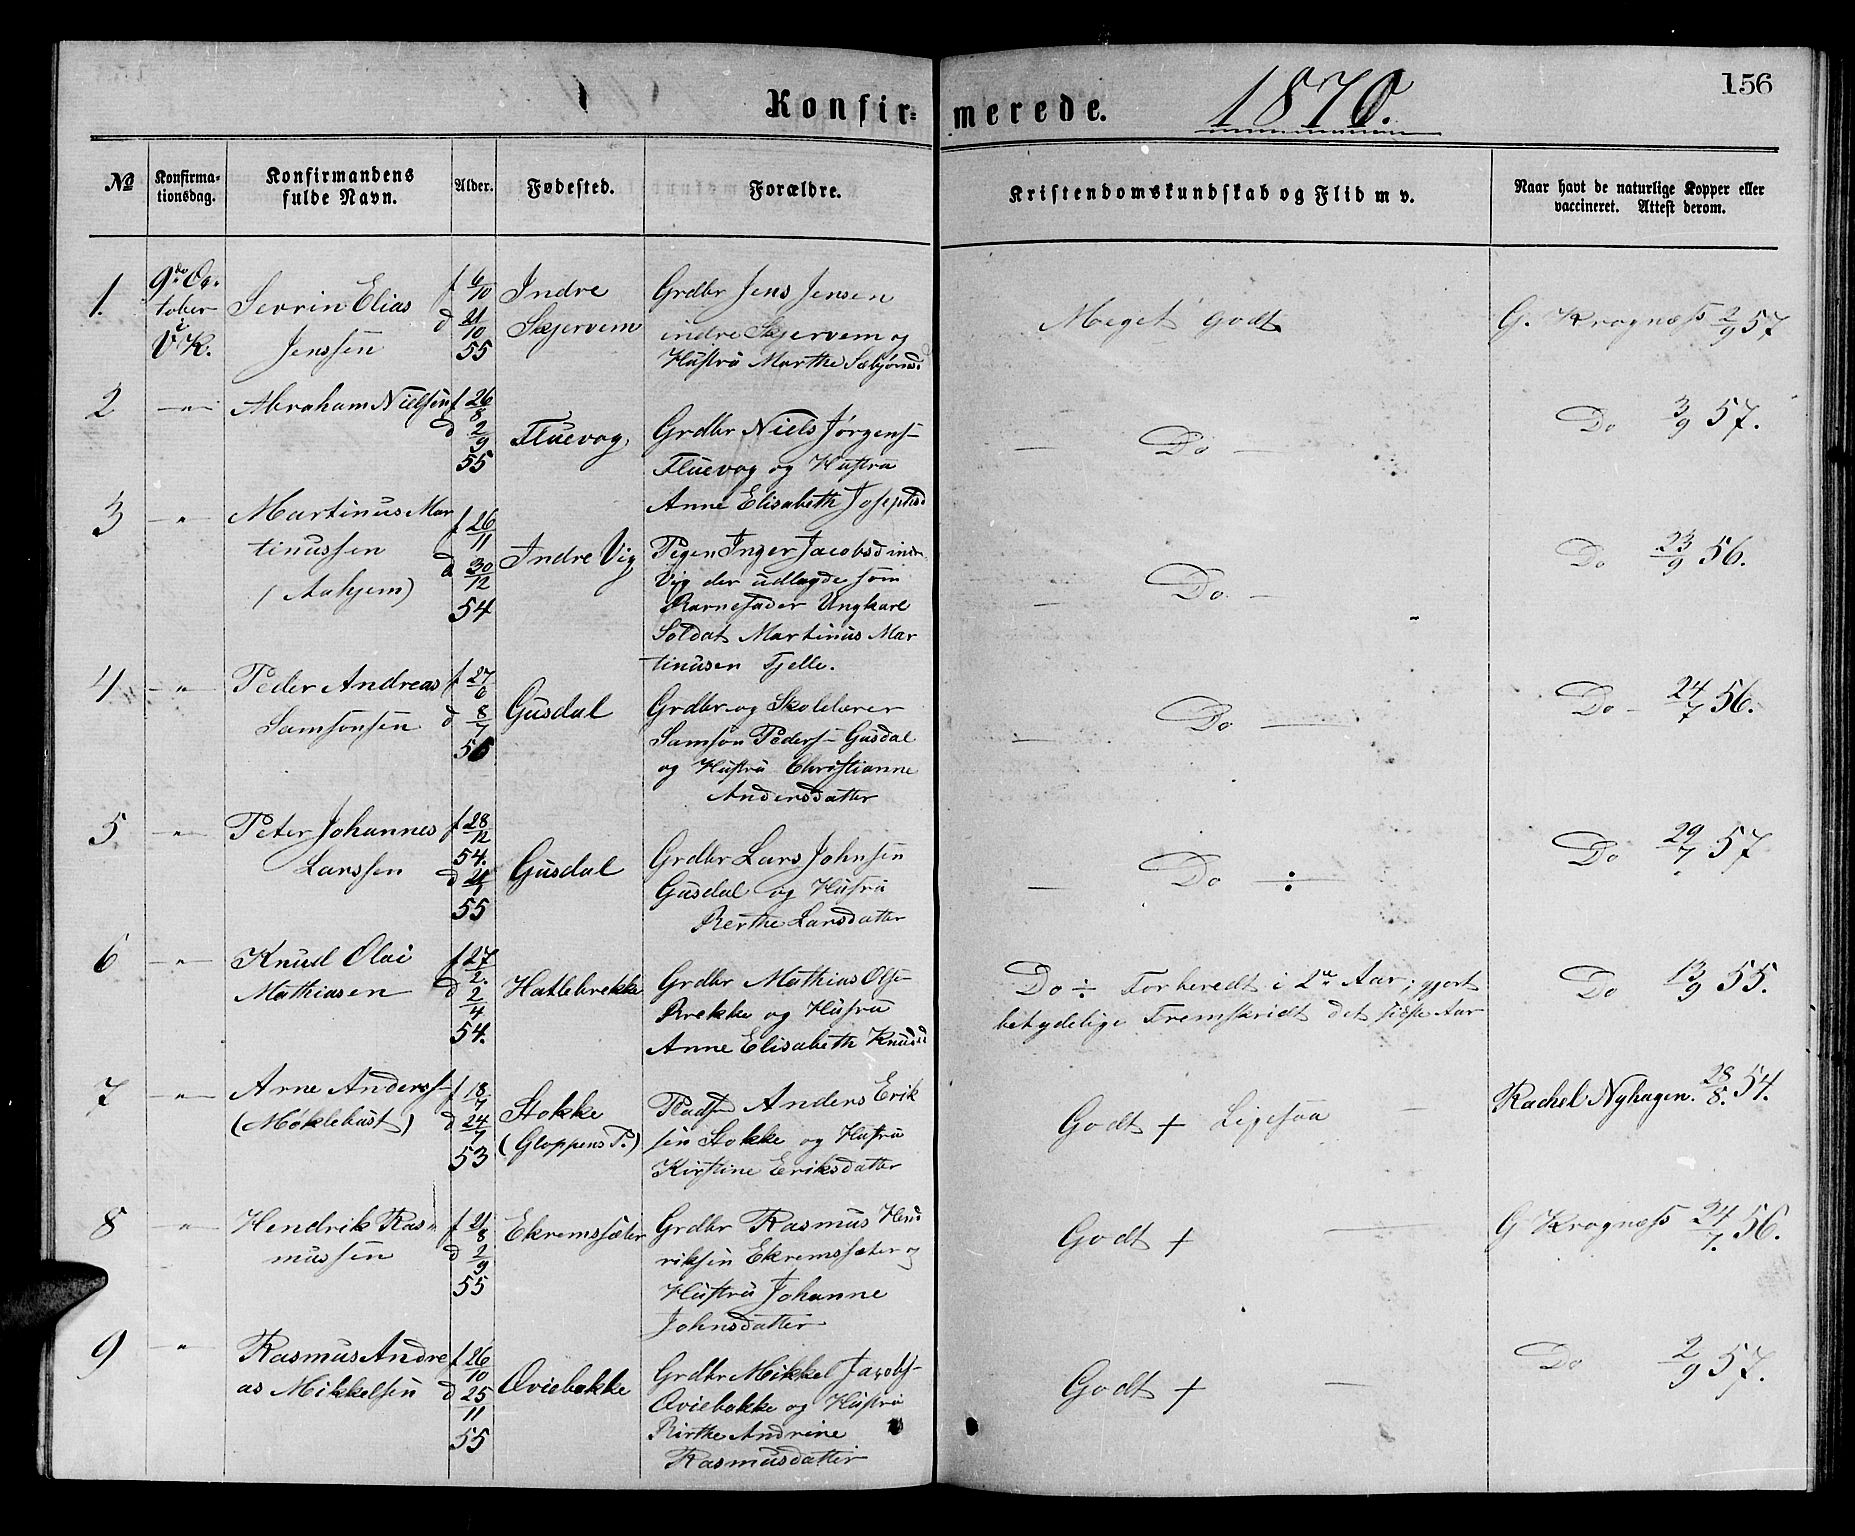 156
Konfirmerede. 1870.
No
Konfirmationsdag.
Konfirmandens fulde Navn.
Alder.
Fødested.
Forældre.
Kristendomskundskab og Flid m v.
Naar havt de naturlige Kopper eller vaccineret. Attest derom.
1.
9de October i V. K.
Sevrin Elias
Jenssen
f 6/10
d 21/10
55
Indre
Skjervem
Grdbr Jens Jensen
indre Skjervem og
Hustru Marthe Sæbjørnsd
Meget godt
G. Krogness 2/9 57
2
—"—
Abraham Nielsen
f 26/8
d 2/9
55
Fluevog,
Grdbr Niels Jørgens-
Fluevog og Hustru
Anne Elisabeth Josephsd
— Do —
Do 3/9 57.
3
—"—
Martinus Mar
tinussen
(Aahjem)
f 26/11
d 30/12
54
Indre Vig
Pigen Inger Jacobsd indr
Vig der udlagde som
Barnefader Ungkarl
Soldat Martinus Mar
tinusen Fjelle.
— Do. —
Do 23/9 56.
4
—"—
Peder Andreas
Samsonsen
f 27/6
d 8/7
55
Gusdal
Grdbr og Skolelærer
Samson Peders- Gusdal
og Hustru Christianne
Andersdatter
— Do —
Do - 24/7 56.
5
—"—
Peter Johannes
Larssen
f 28/12
54.
d 21/1
55
Gusdal
Grdbr Lars Johnsen
Gusdal og Hustru
Berthe Larsdatter
— Do ÷
Do 29/7 57
6
—"—
Knud Olai
Mathiasen
f 27/2.
d 2/4
54.
Hatlebrekke
Grdbr Mathias Ols-
Brekke og Hustru
Anne Elisabeth Knudsd
Do ÷ Forberedt i 2de Aar; gjort
betydelige Fremskridt det sidste Aar
Do 13/9 55.
7
—"—
Arne Anderss-
(Møklebust)
f 18/7
d 24/7
53
Stokke
(Gloppens P.)
Pladsm Anders Erik
sen Stokke og Hustru
Kirstine Eriksdatter
Godt + Ligesaa —
Rachel Nyhagen. 28/8. 54.
8
—"—
Hendrik Ras-
mussen
f 21/8
d 2/9
55
Ekremssæter
Grdbr Rasmus Hen
riksen Ekremssæter og
Hustru Johanne
Johnsdatter
Godt + —
G Krogness 24/7. 56.
9
"
Rasmus Andre
as Mikkelsen
f 26/10
d 25/11
55
Qviebakke
Grdbr Mikkel Jacobs-
Qviebakke og Hustru
Birthe Andrine
Rasmusdatter
Godt + —
Do 2/9 57.